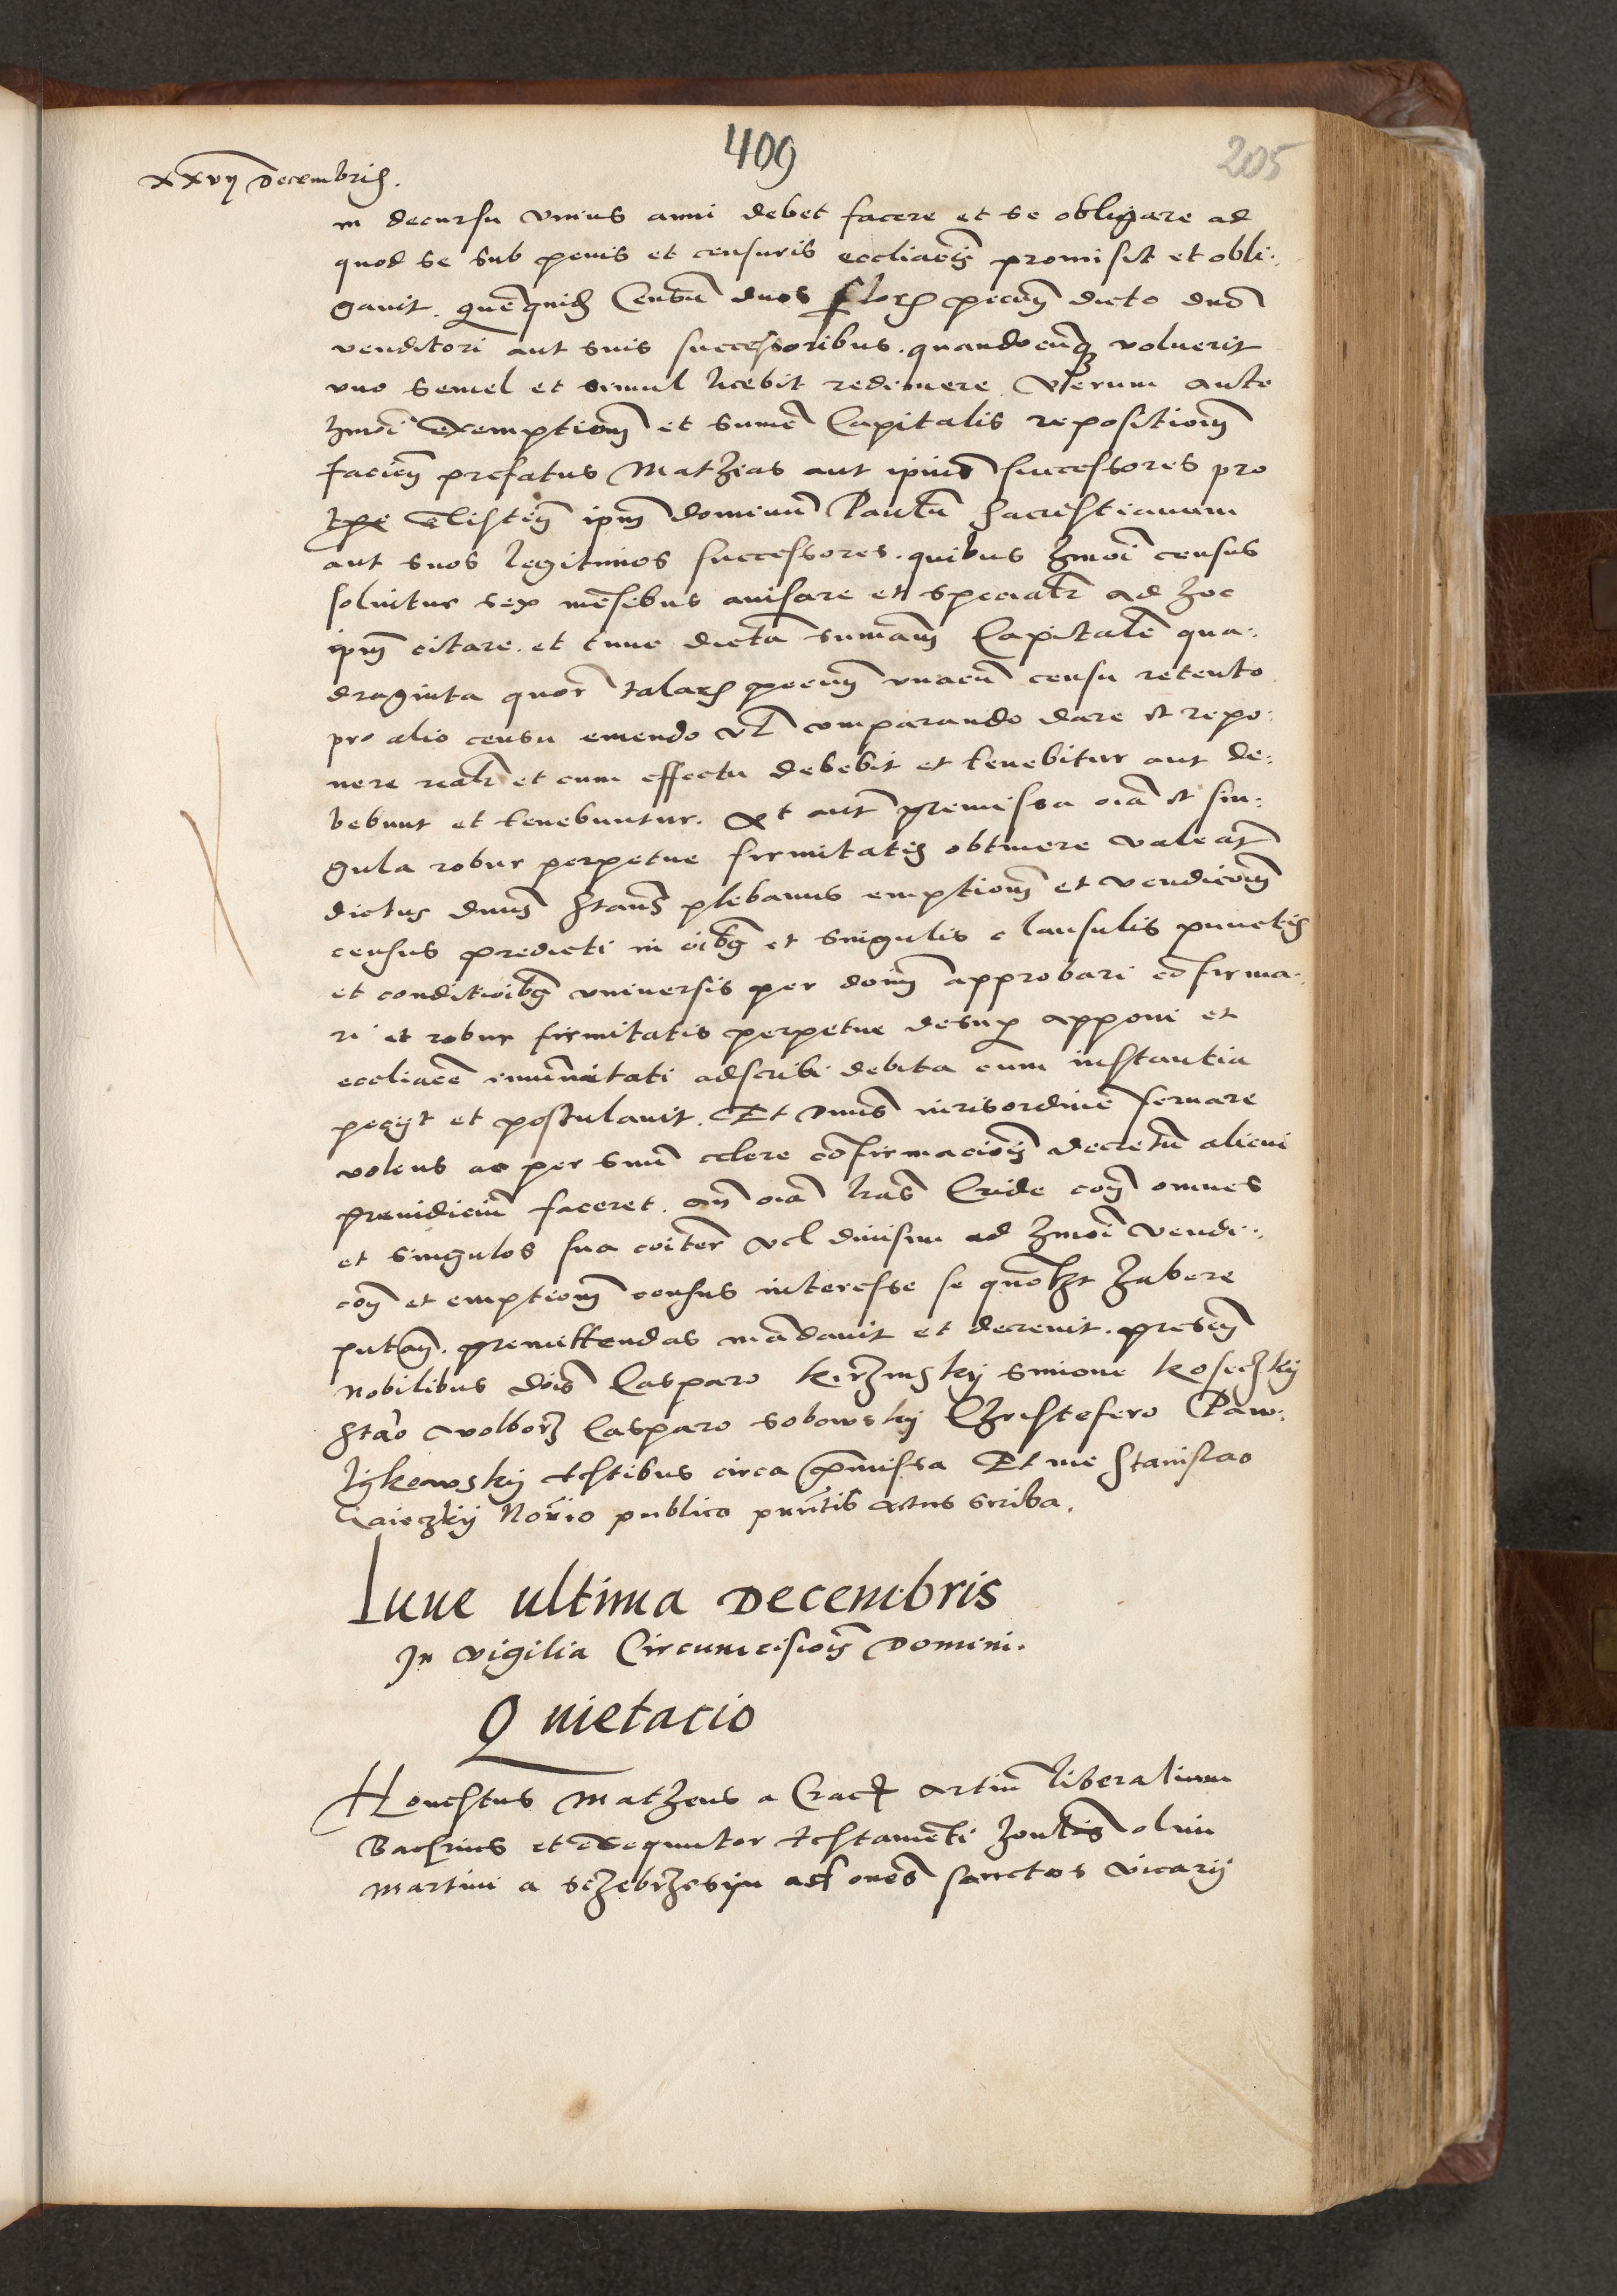 409
205
xxvij Decembris.
in decursu vnius anni debet facere et se obligare ad
quod se sub penis et censuris eccliacis promisit et obli:
gauit. quequid Censu duos flor pecun dicto dno
venditori aut suis successoribus. quandocunq voluerit
vno semel et simul licebit redimere Verum ante
hmoi exemptiom et sume Capitalis repositiom
faciem prefatus Matheas aut ipius successores pro
tpe existen ipm dominum Paulu sacristianum
aut suos legitimos successores. quibus hmoi census
soluitur sex mesibus auisare et specialr ad hoc
ipm citare. et tunc dicta sumam Capitale qua:
draginta quor talar pecun vnacu censu retento
pro alio censu emendo vl comparando dare et repo:
nere realr et cum effectu debebit et tenebitur aut de:
bebunt et tenebuntur. Vt aut premissa oia et sin:
gula robur perpetue firmitatis obtinere valeat
dictus dnus Stans plebanus emptiom et vendiciom
census predicti in oibg et singulis clausulis punctis
et conditioibg vniuersis per doim approbari cofirma:
ri et robur firmitatis perpetue desup apponi et
eccliace imunitati adscribi debita cum instantia
pecijt et postulauit. Et Dnus iurisordine seruare
volens ac per suu celere cofirmaciois decretu alicui
preiudiciu faceret. an oia lras Cride con omnes
et singulos sua coiter vel diuisim ad hmoi vendi:
con et emptiom census interesse se quolzt habere
putan. premittendas madauit et decreuit. presen
nobilibus dois Casparo Simone Kosechky
Stao Wolborz Casparo Sobowsky Christefero Paw:
lykowsky testibus circa pmissa Et me Stanislao
Norio publico pntis actus scriba.
Lune ultima Decembris
In vigilia Circumcisiois Domini.
Quietacio
Honestus Matheus a Crac artiu liberalium
Baclrius et exequutor testameti hontis olim
Martini a Sczebrzesijn ad ones sanctos vicarij